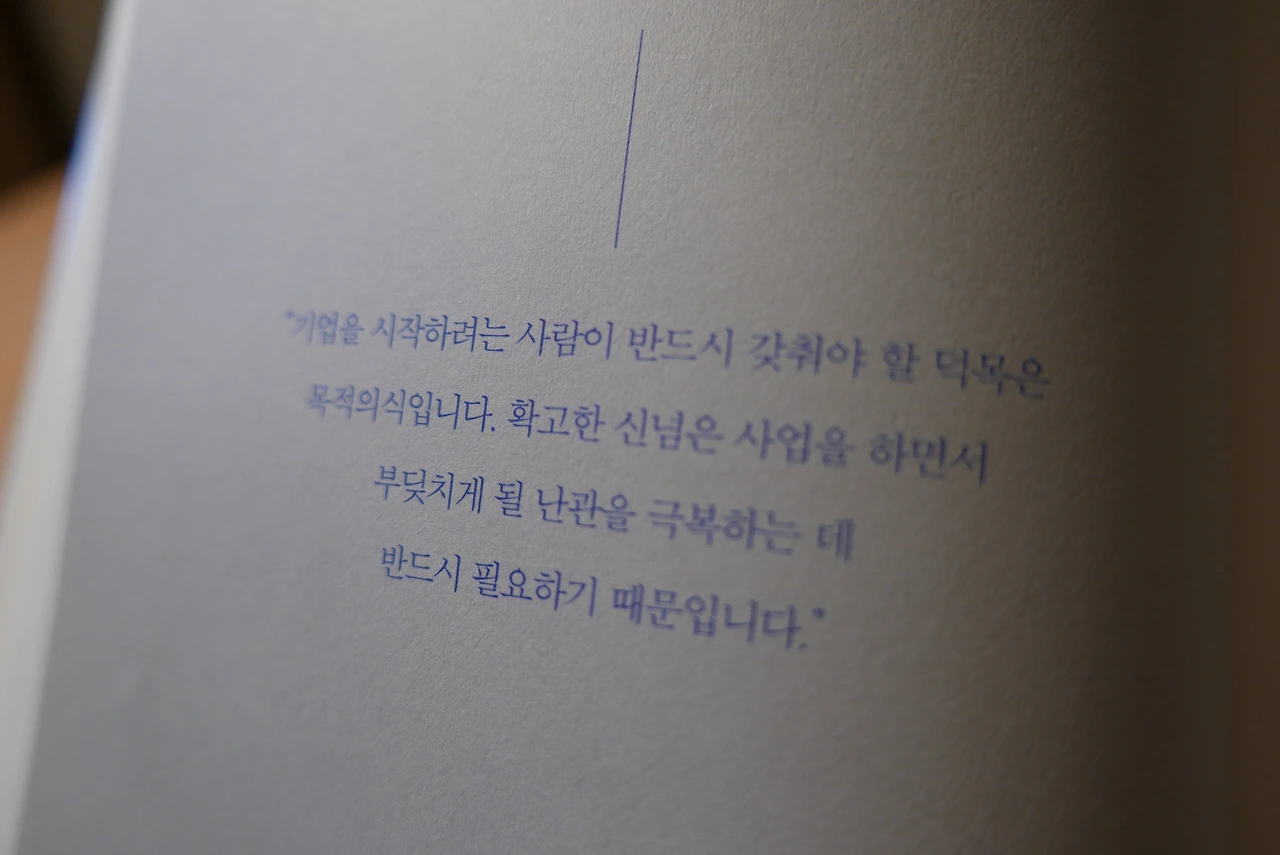 "기업을 시작하려는 사람이 반드시 갖춰야 할 덕목은
목적의식입니다. 확고한 신념은 사업을 하면서
부딪치게 될 난관을 극복하는 데
반드시 필요하기 때문입니다."